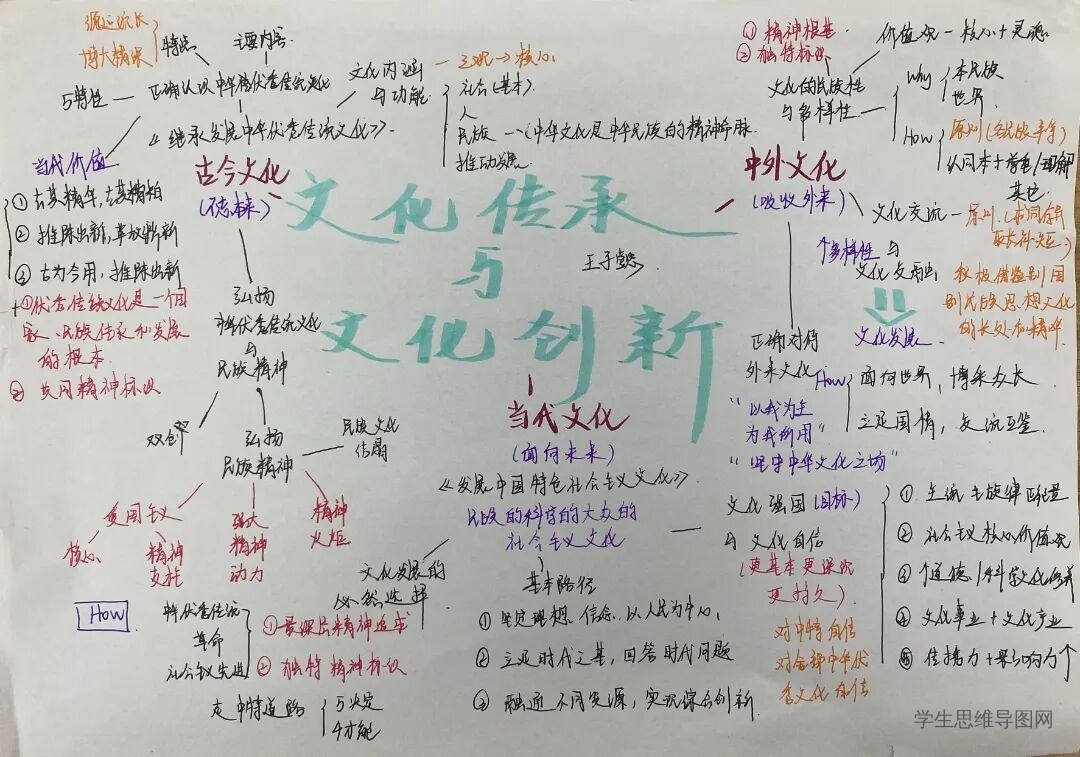 源远流长
博大精深
特点
主要内容
5特性
正确认识中华优秀传统文化
文化内涵
与功能
核心
社会(基本)
人
民族 — (中华文化是中华民族的精神命脉
推动发展
《继承发展中华优秀传统文化》
当代价值
① 去其精华,去其糟粕
② 推陈出新,革故鼎新
③ 古为今用,推陈出新
+①优秀传统文化是一个国
家、民族传承和发展
的根本
② 共同精神标识
古今文化
(不忘本来)
弘扬
中华优秀传统文化
与
民族精神
双创
弘扬
民族精神
民族文化
信息
爱国主义
核心
精神
支柱
强大
精神
动力
精神
火炬
文化传承
与
文化创新
① 精神根基
② 独特标识
文化的民族性
与多样性
价值观 — 核心+灵魂
Why
本民族
世界
How
原则(各民族平等)
认同本+尊重/理解
其他
中外文化
(吸收外来)
文化交流 — 原则
个多样性 与
文化交融
积极借鉴别国
别民族思想文化
的长处和精华
文化发展
正确对待
外来文化
How
面向世界,博采众长
立足国情,交流互鉴
“以我为主
为我所用”
“坚守中华文化立场”
当代文化
(面向未来)
《发展中国特色社会主义文化》
民族的科学的大众的
社会主义文化
文化强国(目标)
与 文化自信
(更基本更深沉
更持久)
对中特自信
对金秀中华优
秀文化自信
① 主流主旋律
② 社会主义核心价值观
③ 个道德/科学文化修养
④ 文化事业+文化产业
⑤ 传播力+影响力个
文化发展的
必然选择
基本路径
① 坚定理想、信念,以人民为中心,
② 立足时代之基,回答时代问题
③ 融通不同资源,实现综合创新.
How
中华优秀传统
革命
社会主义先进
① 最深层精神追求
② 独特精神标识
走中特道路
5决定
4才能
学生思维导图网